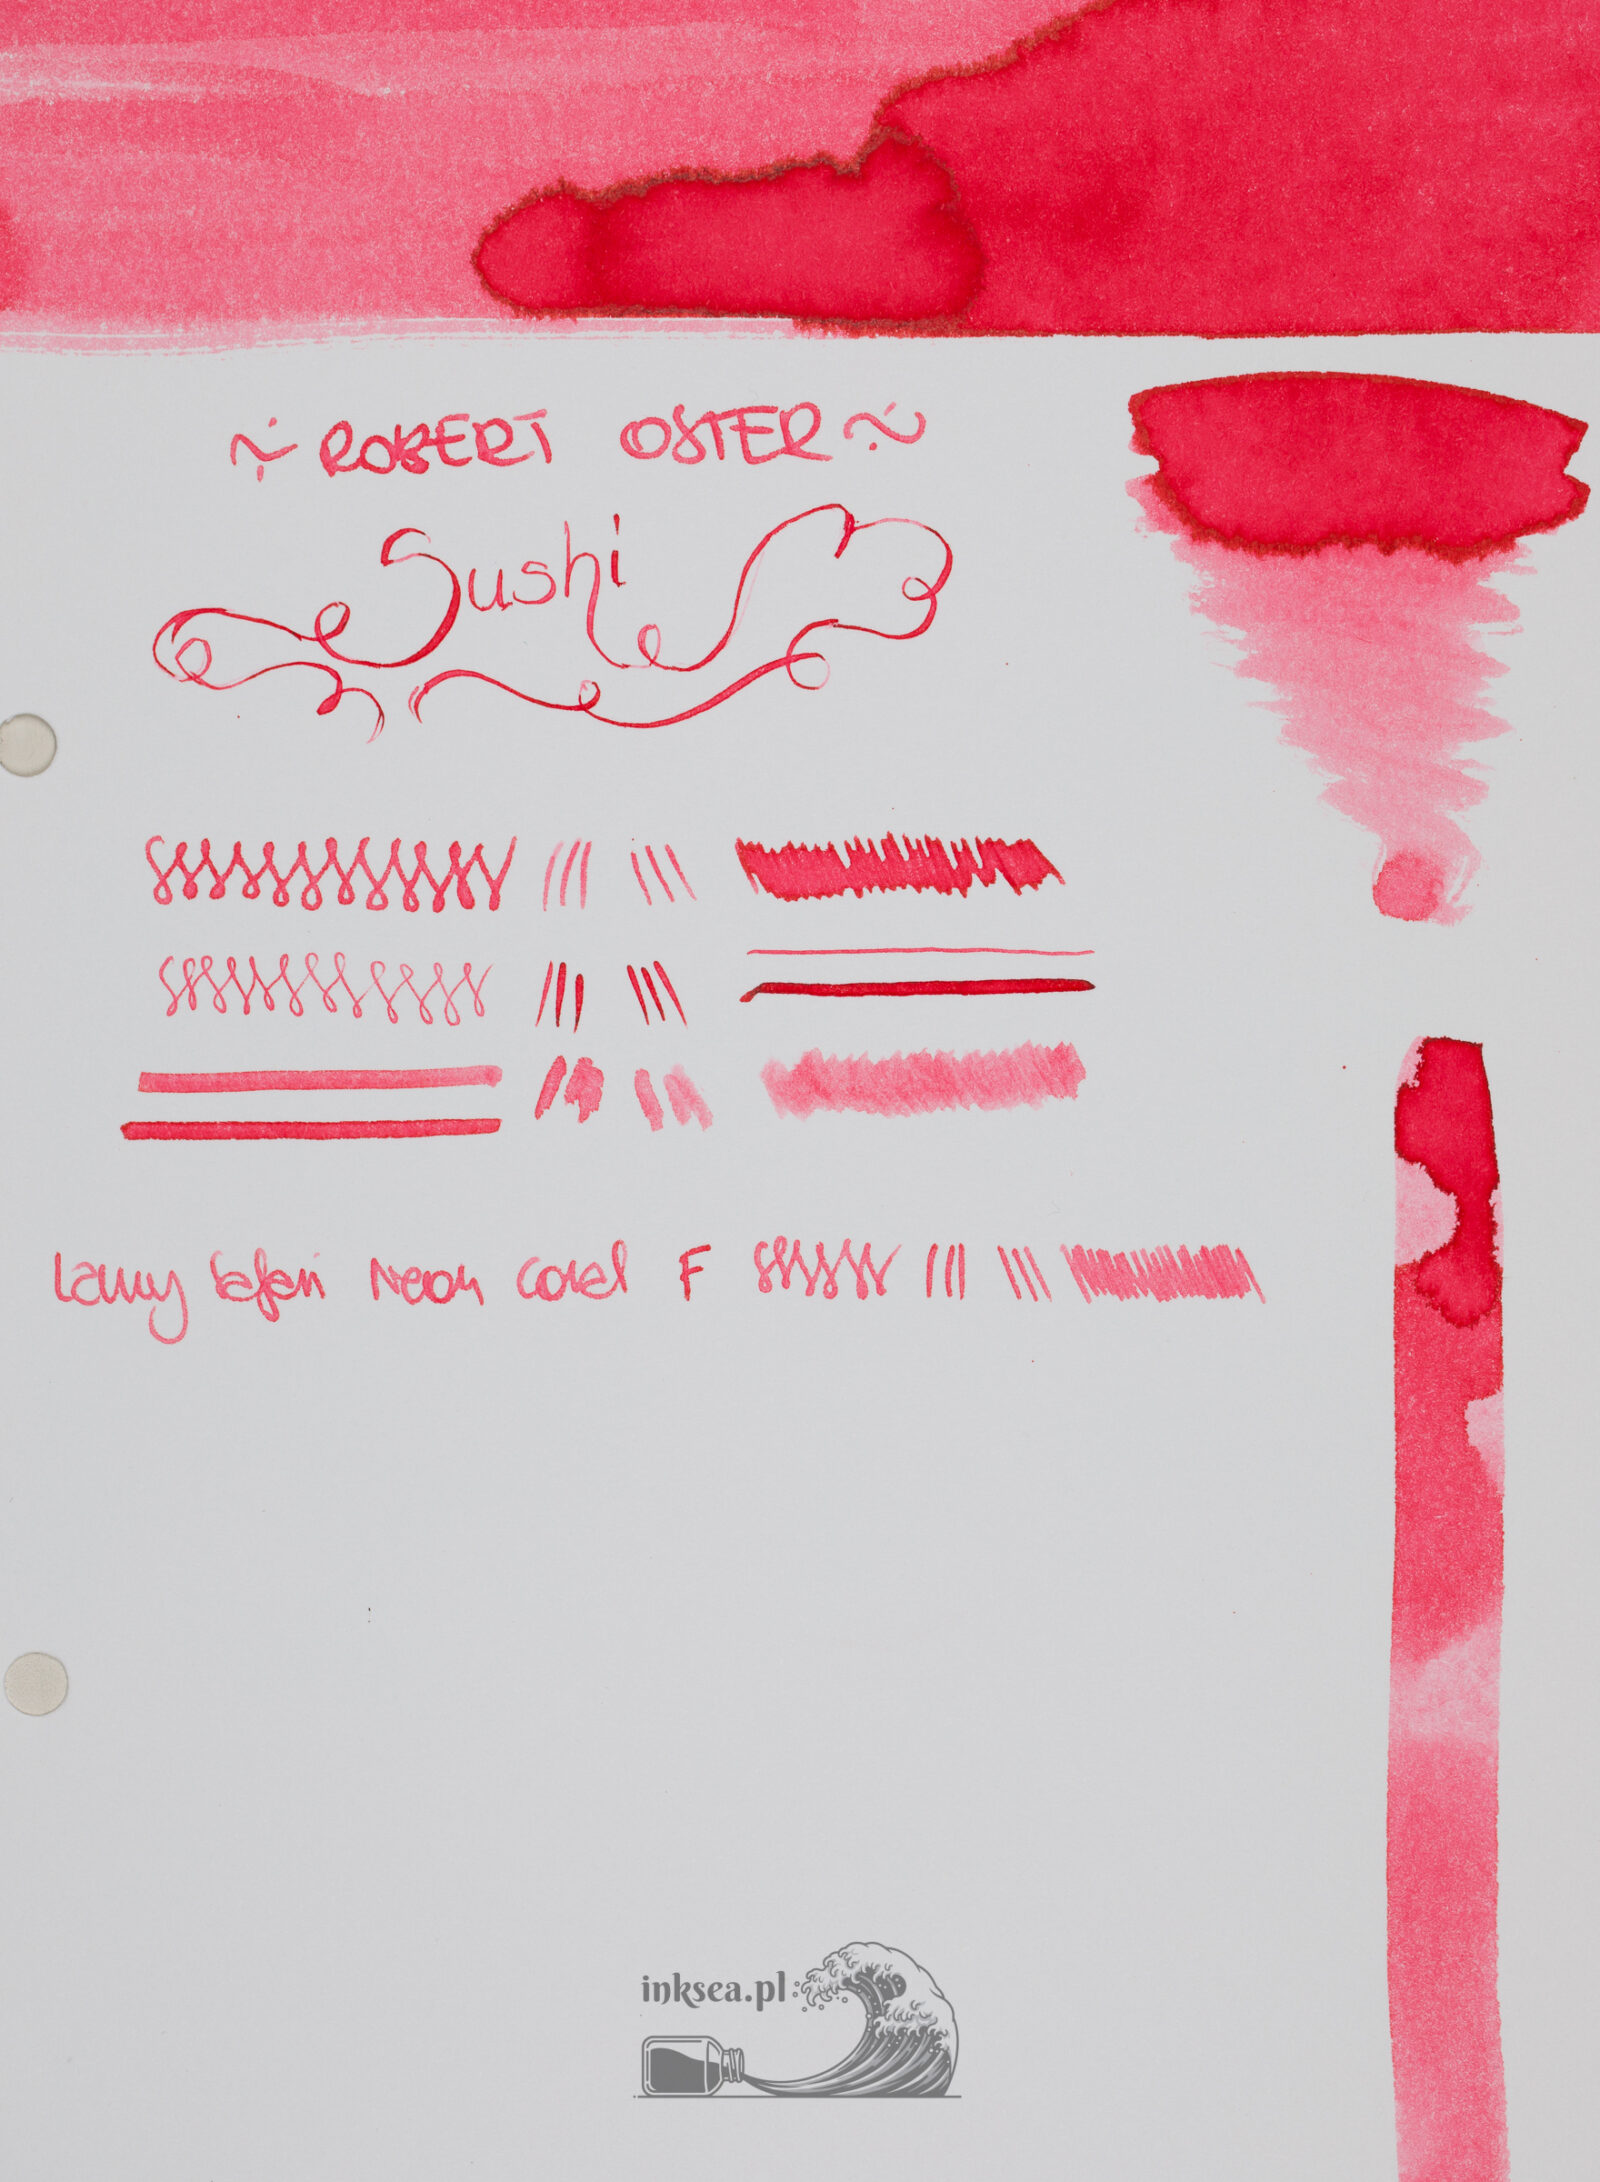 ~ ROBERT OSTER ~
Sushi
Lamy Safari Neon Coral F
inksea.pl